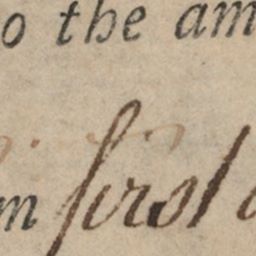 o the am
m first